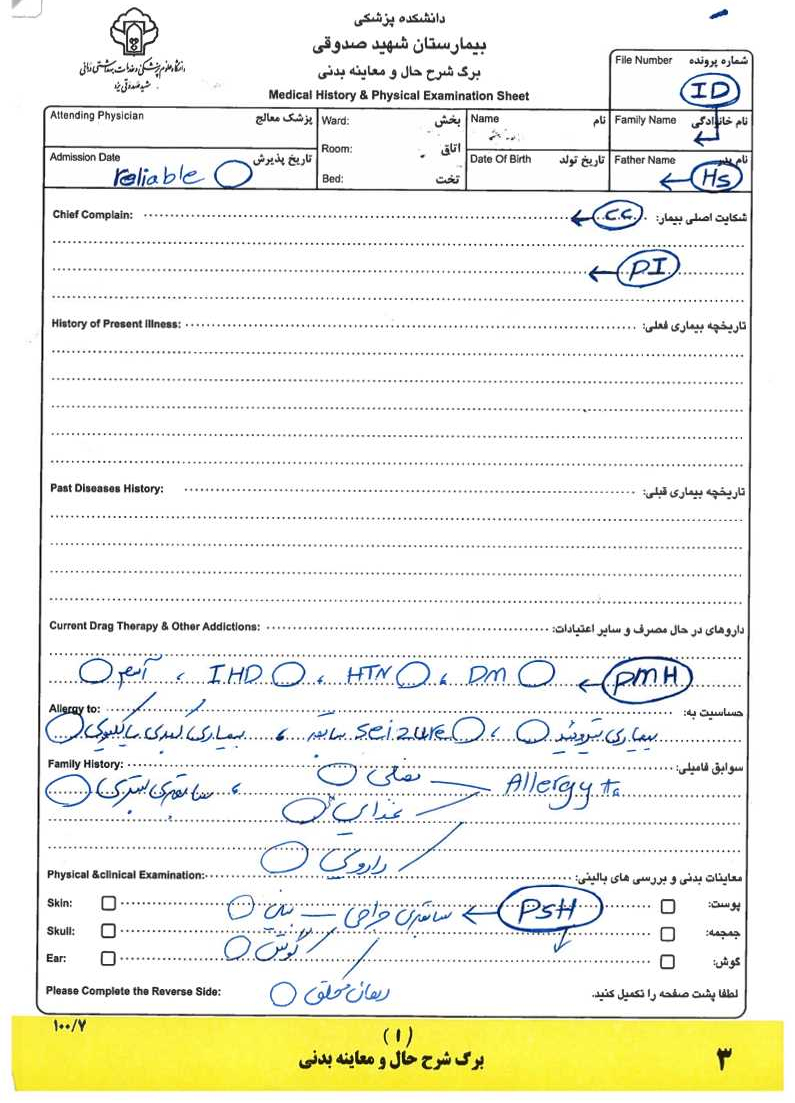 دانشکده پزشکی
بیمارستان شهید صدوقی
برگ شرح حال و معاینه بدنی
Medical History & Physical Examination Sheet
دانشگاه علوم پزشکی و خدمات بهداشتی درمانی
شهید صدوقی یزد
شماره پرونده File Number
ID
نام خانوادگی Family Name
نام Name
بخش Ward:
پزشک معالج Attending Physician
اتاق Room:
نام پدر Father Name
Hs
تاریخ تولد Date Of Birth
تاریخ پذیرش Admission Date
reliable
تخت Bed:
شکایت اصلی بیمار: CC Chief Complain:
PI
تاریخچه بیماری فعلی: History of Present Illness:
تاریخچه بیماری قبلی: Past Diseases History:
داروهای در حال مصرف و سایر اعتیادات: Current Drag Therapy & Other Addictions:
PMH DM ، HTN ، IHD ، آسم
حساسیت به: Allergy to:
بیماری تیروئید ، seizure سابقه ، بیماری کبدی یا کلیوی
سوابق فامیلی: Family History:
Allergy to فصلی ، سابقه‌ی بستری
غذایی
دارویی
معاینات بدنی و بررسی های بالینی: Physical &clinical Examination:
پوست: Skin:
PSH سابقه‌ی جراحی بینی
جمجمه: Skull:
گوش
گوش: Ear:
دهان و حلق
لطفا پشت صفحه را تکمیل کنید. Please Complete the Reverse Side:
۱۰۰/۷
(۱)
برگ شرح حال و معاینه بدنی
۳